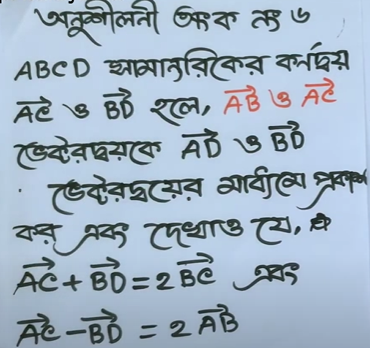 অনুশীলনী অংক নং ৬
ABCD সামান্তরিকের কর্ণদ্বয়
AC ও BD হলে, AB ও AC
ভেক্টরদ্বয়কে AD ও BD
ভেক্টরদ্বয়ের মাধ্যমে প্রকাশ
কর এবং দেখাও যে,
AC + BD = 2 BC এবং
AC − BD = 2 AB